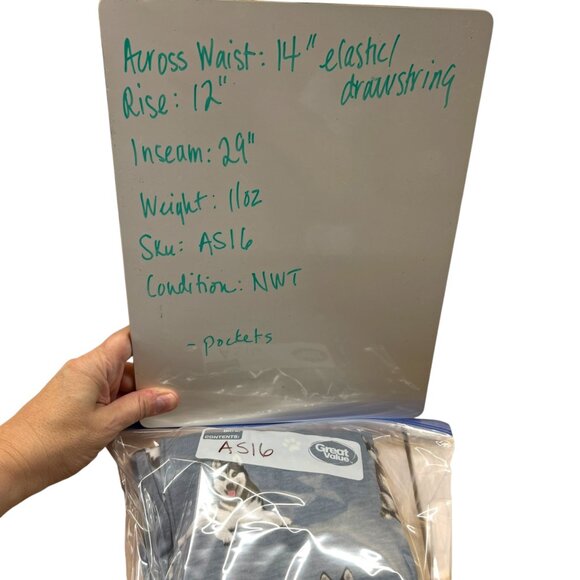 Across Waist: 14" elastic/
drawstring
Rise: 12"
Inseam: 29"
Weight: 11oz
Sku: AS16
Condition: NWT
- pockets
CONTENTS:
AS16
Great
Value